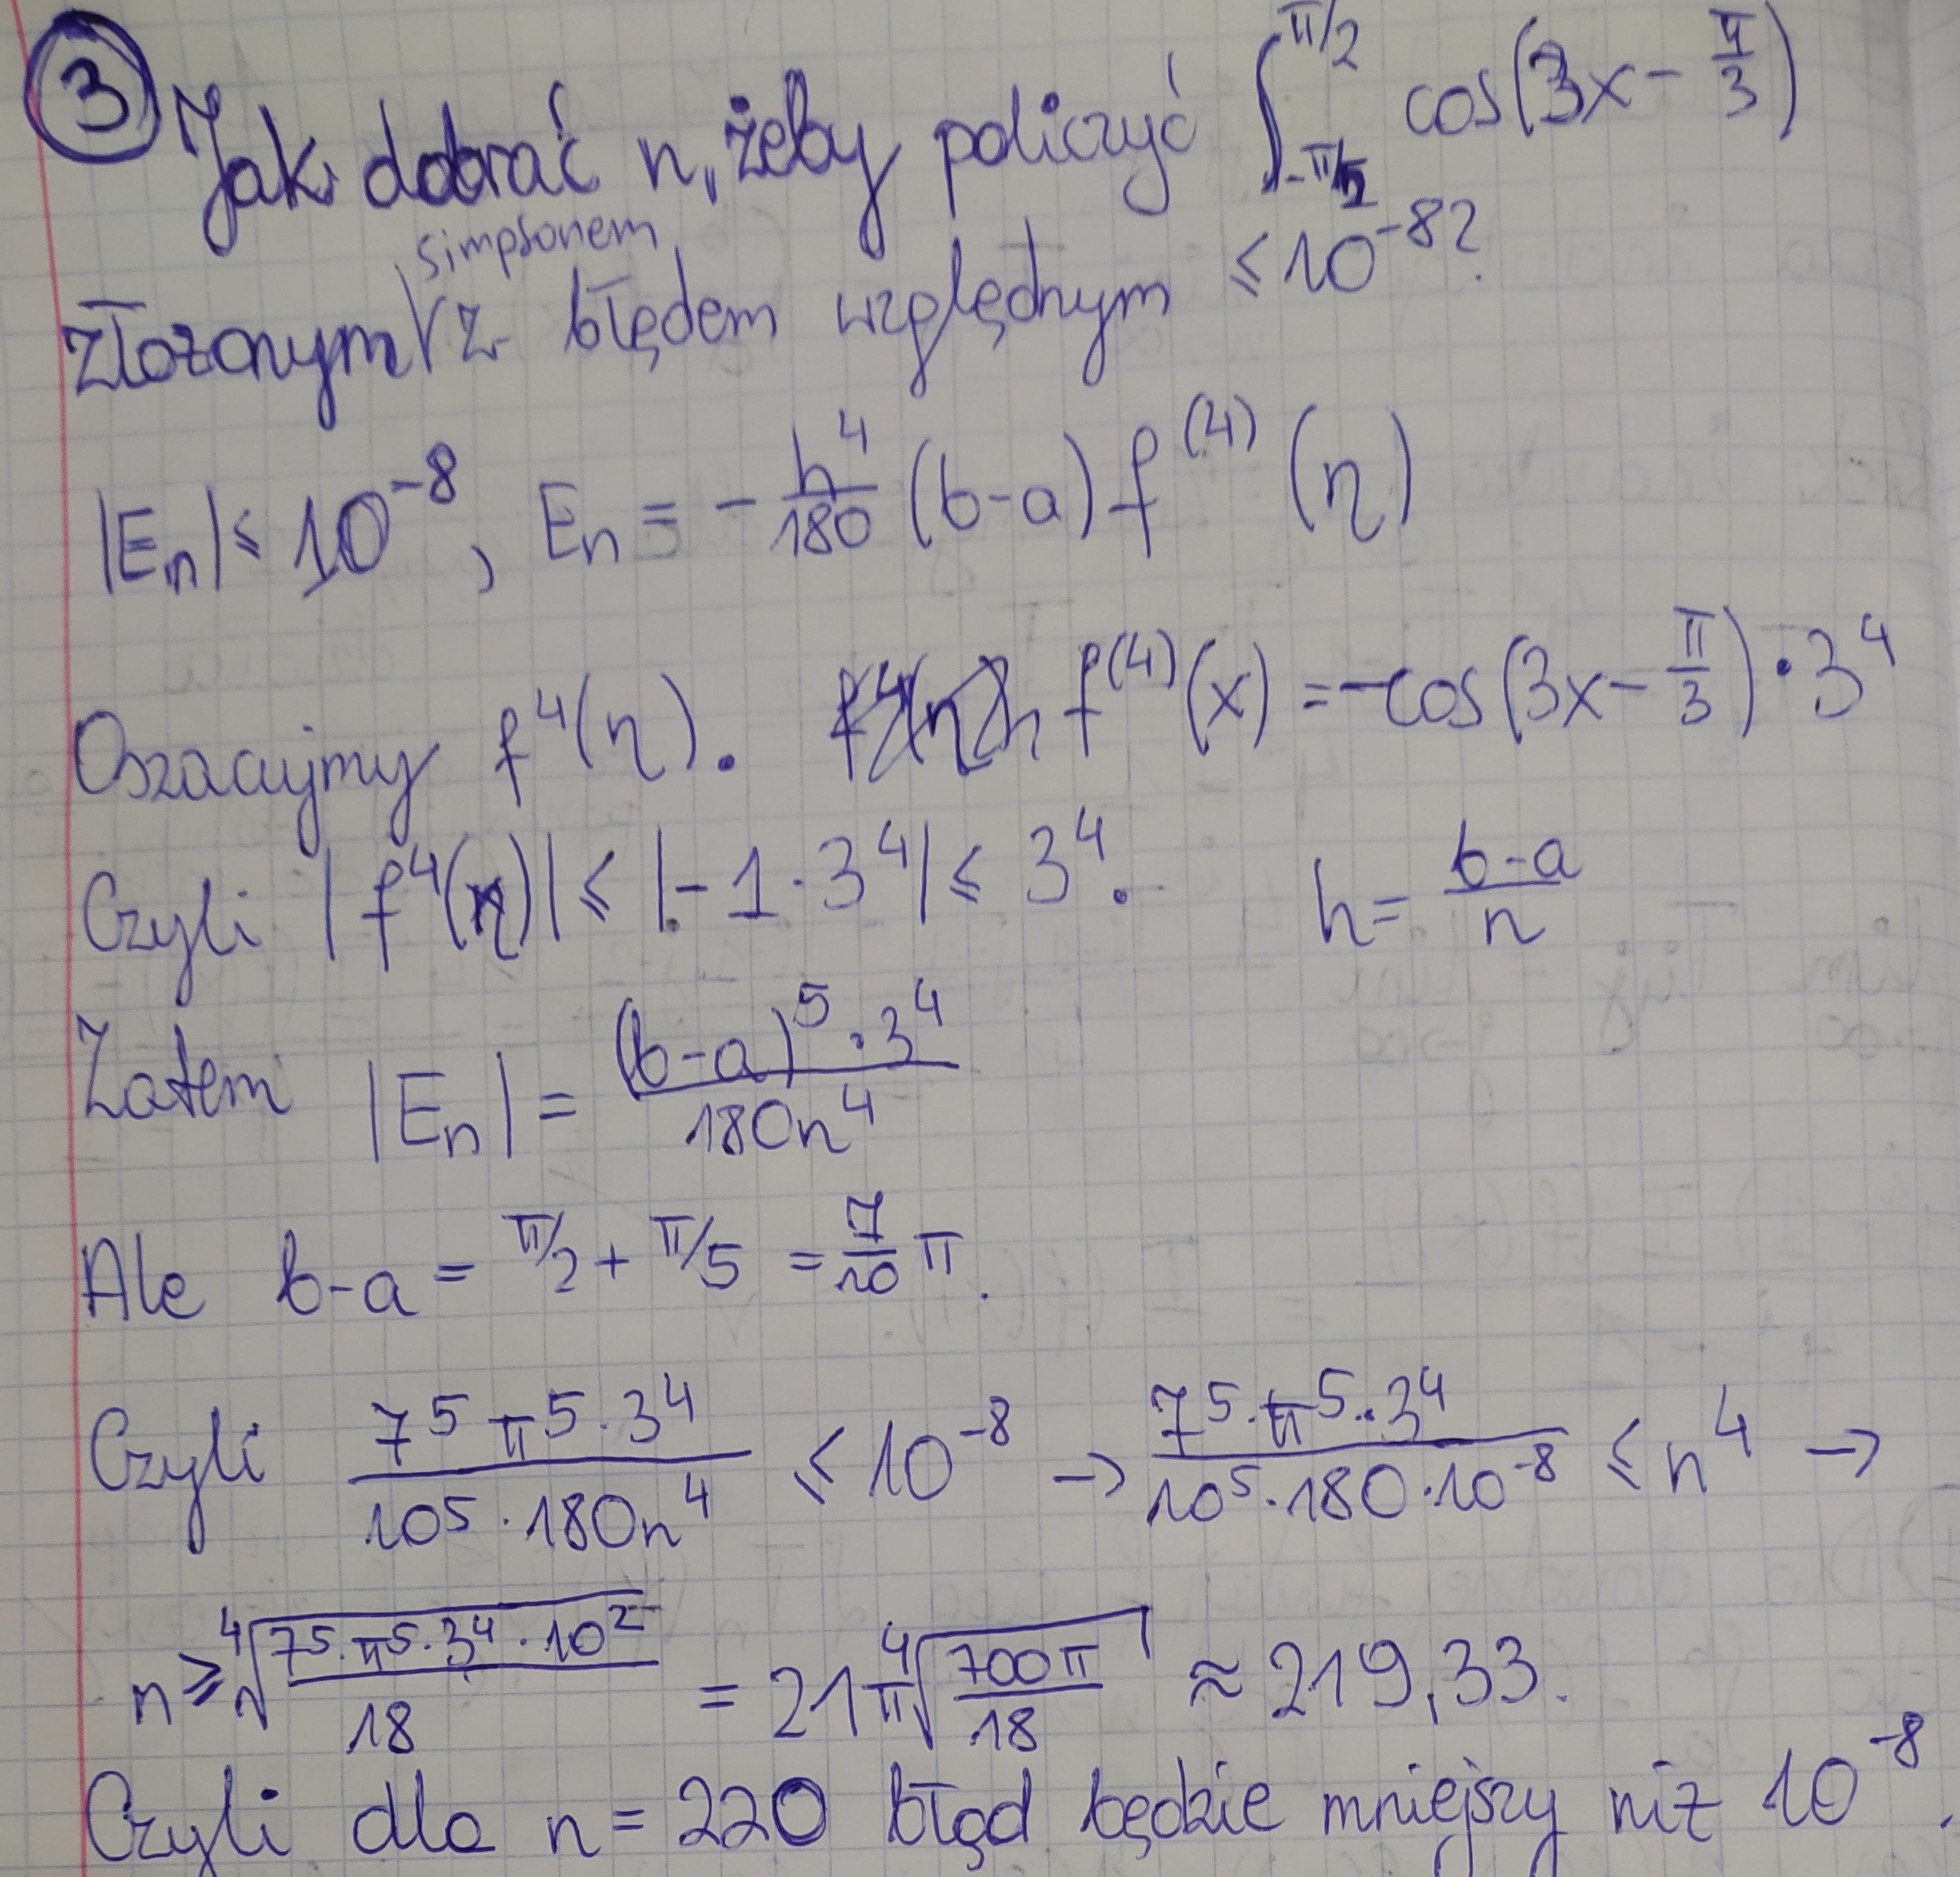 ③ Jak dobrać n, żeby policzyć ∫_{-π/5}^{π/2} cos(3x - π/3)
simpsonem
złożonym z błędem względnym ≤ 10^{-8}?
|E_n| ≤ 10^{-8}, E_n = - h^4/180 (b-a) f^{(4)} (η)
Oszacujmy f^4(η). f^{(4)}(x) = -cos(3x - π/3) · 3^4
Czyli |f^4(η)| ≤ |-1 · 3^4| ≤ 3^4. h = (b-a)/n
Zatem |E_n| = ((b-a)^5 · 3^4)/(180n^4)
Ale b-a = π/2 + π/5 = 7/10 π.
Czyli (7^5 π^5 · 3^4)/(10^5 · 180n^4) ≤ 10^{-8} → (7^5 · π^5 · 3^4)/(10^5 · 180 · 10^{-8}) ≤ n^4 →
n ≥ ∜((7^5 · π^5 · 3^4 · 10^2)/18) = 21π ∜(700π/18) ≈ 219,33.
Czyli dla n = 220 błąd będzie mniejszy niż 10^{-8}.